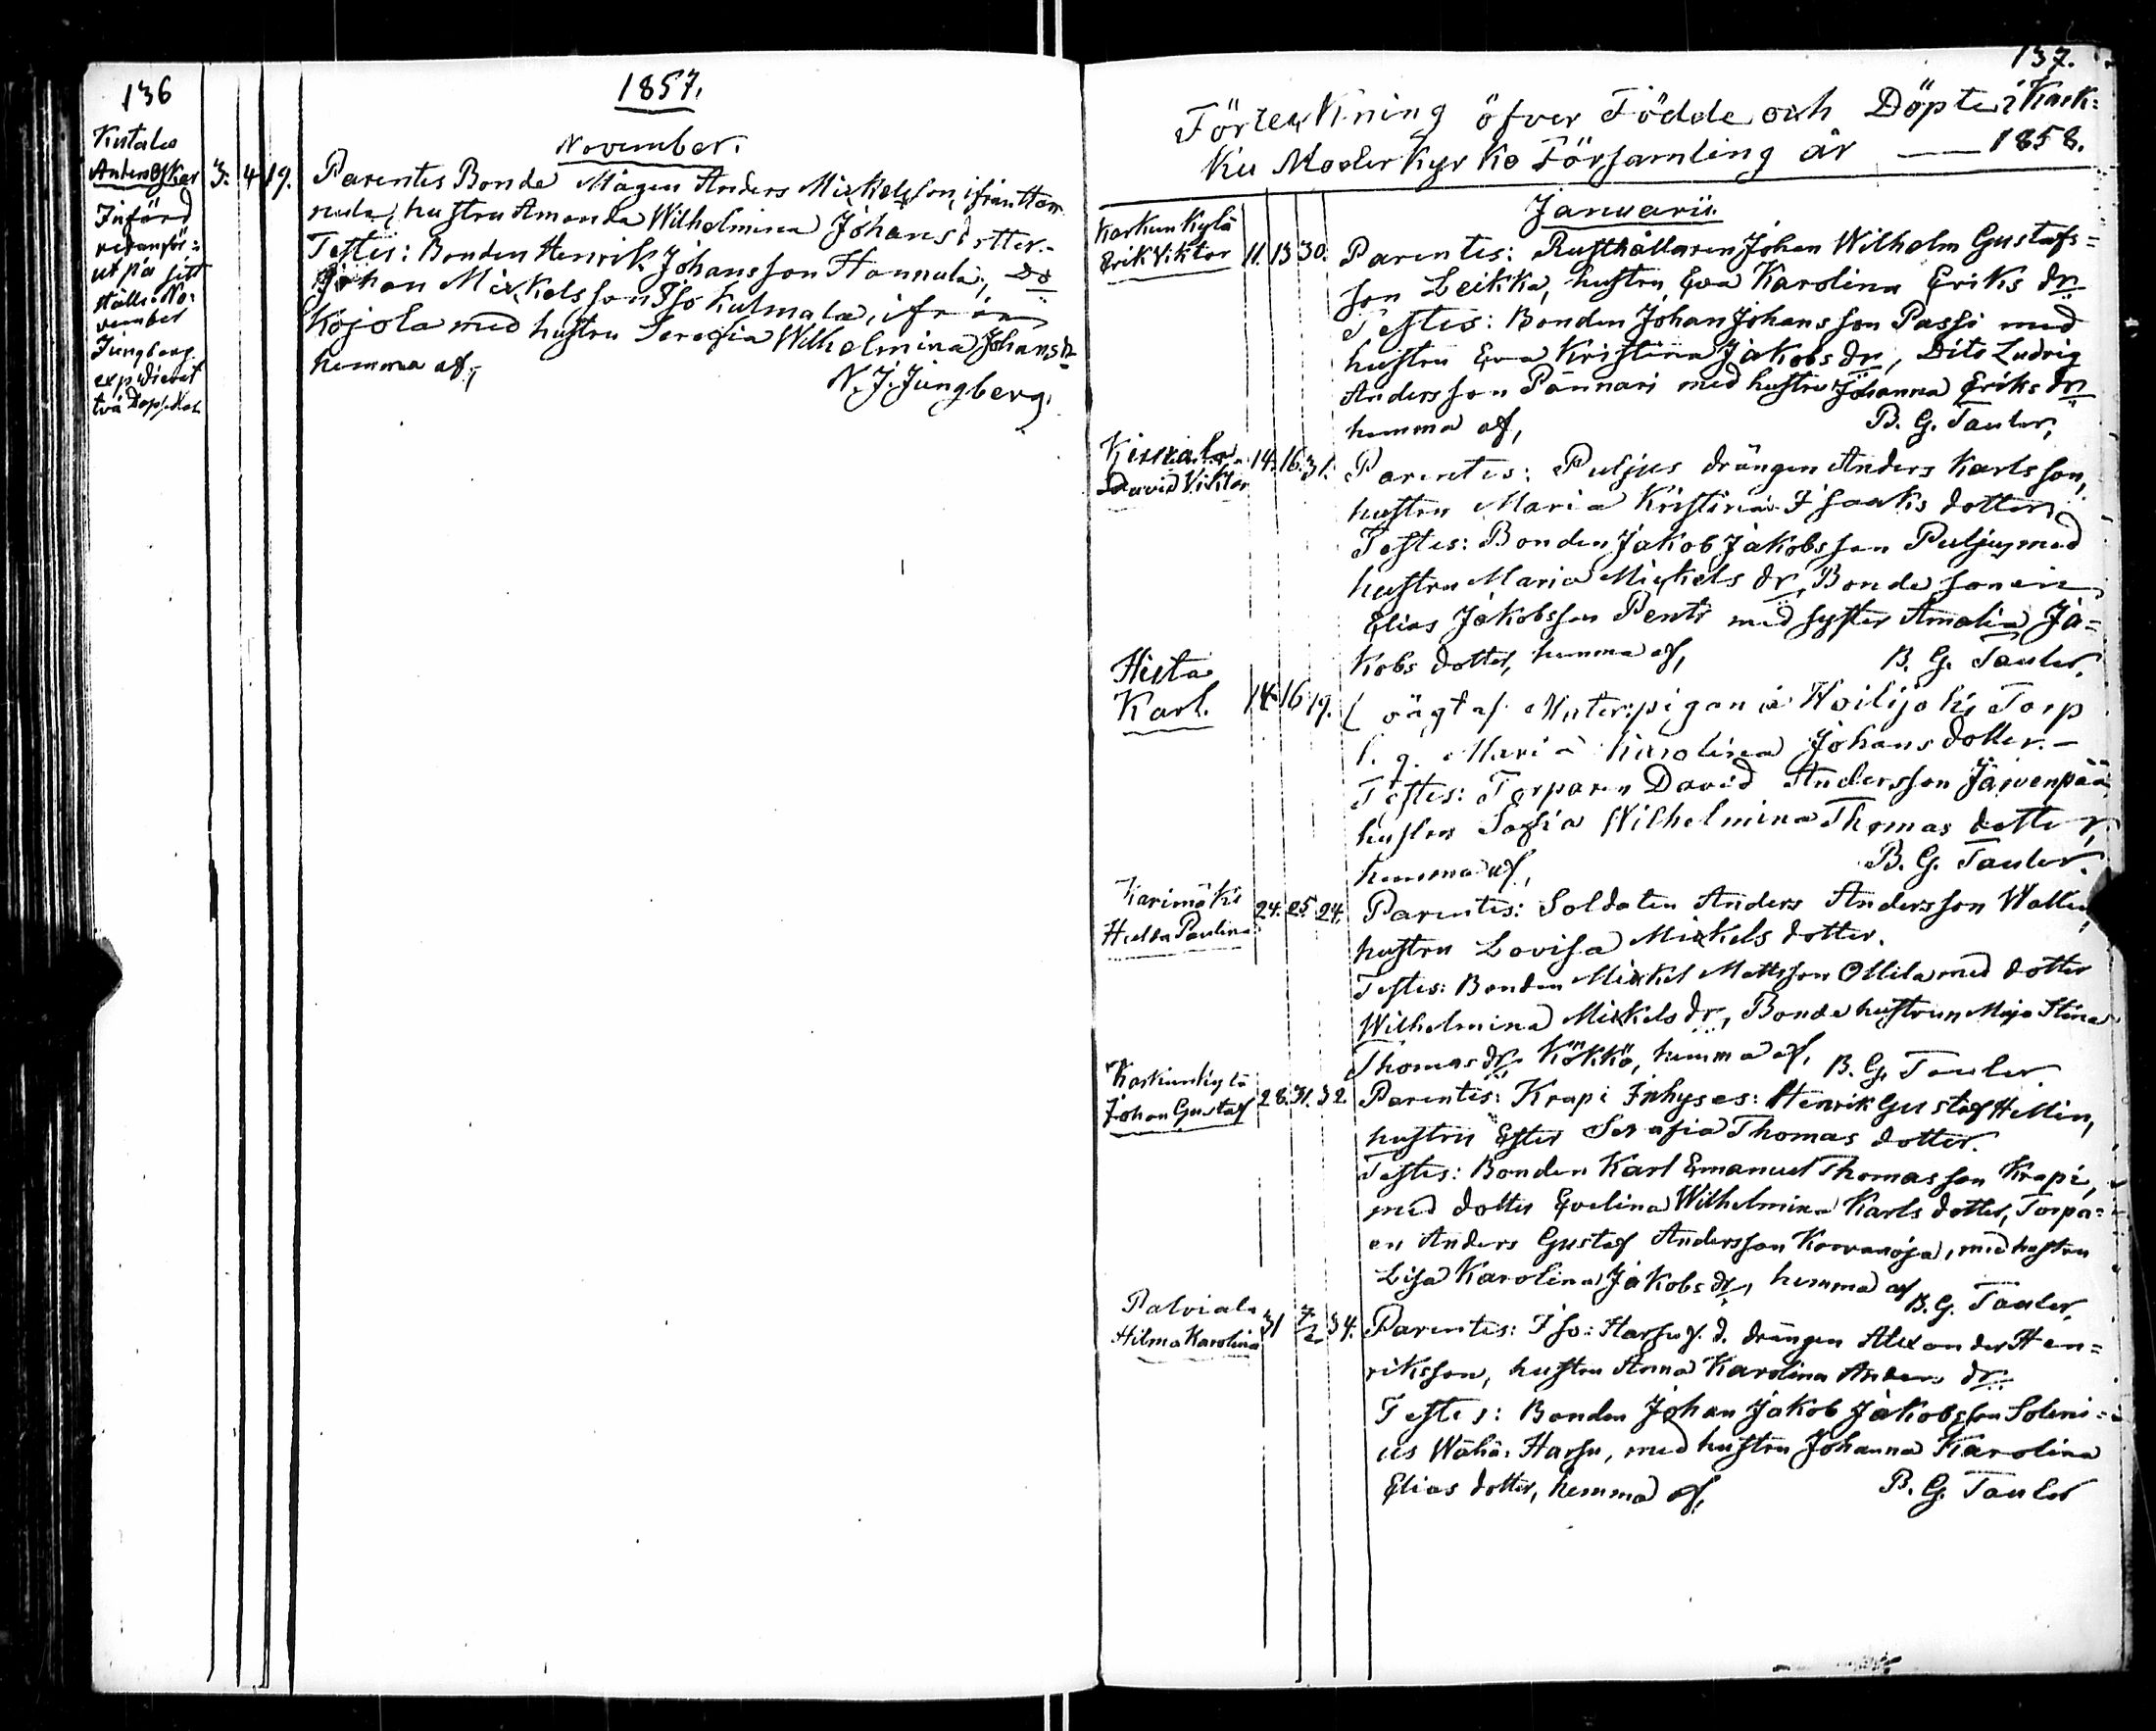 136
1857.
November.
Anders Oskar
3. 4 19.
Införd
redanför=
ut på sitt
ställe No=
vember
Jungberg.
expedierat
två
Parentes Bonde Mågen Anders Mickelsson, ifrån Han
nula, hustru Amanda Wilhelmina Johansdotter.
Testes: Bonden Henrik Johansson Hannula, Do
Johan Mickelsson Iso Kulmala, ifrån
Kojola med hustru Serafia Wilhelmina Johansdr
hemma af,
N. J. Jungberg.
137.
Förteckning öfver Födde och Döpte i Kark=
ku Moderkyrko Församling år — 1858.
Januarii.
Karkunkylä
Erik Viktor
11. 13 30.
Parentes: Rusthållaren Johan Wilhelm Gustafs=
son Leikka, hustru Eva Karolina Eriks dr
Testes: Bonden Johan Johansson Passi med
hustru Eva Kristina Jakobs dr, Dito Ludvig
Andersson Pännäri med hustru Johanna Eriks dr
hemma af,
B. G. Tauler,
David Viktor
14. 16. 31.
Parentes: Puljus drängen Anders Karlsson,
hustru Maria Kristina Isaaks dotter,
Testes: Bonden Jakob Jakobsson Puljus med
hustru Maria Mickels dr, Bondesonen
Elias Jakobsson Pentti med syster Amalia Ja=
kobs dotter, hemma af,
B. G. Tauler.
Heita
Karl.
14. 16 19.
oägt af Inter: pigan i Heilijoki Torp
l. g. Maria Karolina Johans dotter. —
Testes: Torparen David Andersson Järvenpää
hustru Sofia Wilhelmina Thomas dotter,
hemma af,
B. G. Tauler.
Karimäki
Hulda Paulina
24. 25. 24.
Parentes: Soldaten Anders Andersson
hustru Lovisa Mickels dotter.
Testes: Bonden Mickel Mattsson Ollila med dotter
Wilhelmina Mickels dr, Bonde hustrun Maja Stina
Thomas dr Kökkö, hemma af,
B. G. Tauler
Karkunkylä
Johan Gustaf
28. 31. 32.
Parentes: Krapi Inhyses: Henrik Gustaf Hellin,
hustru Ester Serafia Thomas dotter.
Testes: Bonden Karl Emanuel Thomasson Krapi,
med dotter Evelina Wilhelmina Karls dotter, Torpa=
en Anders Gustaf Andersson Korvanoja, med hustru
Lisa Karolina Jakobs dr, hemma af
B. G. Tauler,
Palviala
Hilma Karolina
31 7/2 34.
Parentes: Iso: Harsu f. d. drängen Alexander Hen=
riksson, hustru Anna Karolina Anders dr
Testes: Bonden Johan Jakob Jakobsson Soleni=
us Wähä: Harsu, med hustru Johanna Karolina
Elias dotter, hemma af,
B. G. Tauler